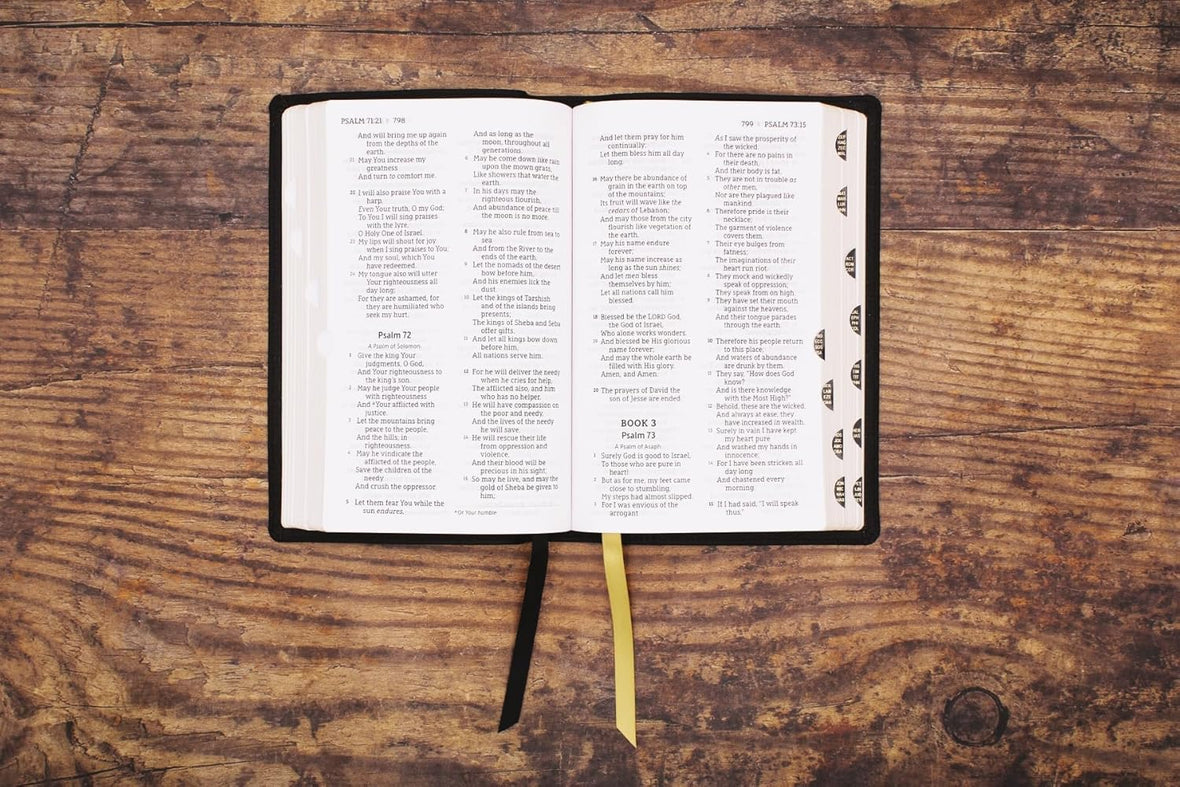 PSALM 71:21 | 798
And will bring me up again
from the depths of the
earth.
21 May You increase my
greatness
And turn to comfort me.
22 I will also praise You with a
harp,
Even Your truth, O my God;
To You I will sing praises
with the lyre,
O Holy One of Israel.
23 My lips will shout for joy
when I sing praises to You;
And my soul, which You
have redeemed.
24 My tongue also will utter
Your righteousness all
day long;
For they are ashamed, for
they are humiliated who
seek my hurt.
Psalm 72
A Psalm of Solomon.
1 Give the king Your
judgments, O God,
And Your righteousness to
the king's son.
2 May he judge Your people
with righteousness
And *Your afflicted with
justice.
3 Let the mountains bring
peace to the people,
And the hills, in
righteousness.
4 May he vindicate the
afflicted of the people,
Save the children of the
needy
And crush the oppressor.
5 Let them fear You while the
sun endures,
And as long as the
moon, throughout all
generations.
6 May he come down like rain
upon the mown grass,
Like showers that water the
earth.
7 In his days may the
righteous flourish,
And abundance of peace till
the moon is no more.
8 May he also rule from sea to
sea
And from the River to the
ends of the earth.
9 Let the nomads of the desert
bow before him,
And his enemies lick the
dust.
10 Let the kings of Tarshish
and of the islands bring
presents;
The kings of Sheba and Seba
offer gifts.
11 And let all kings bow down
before him,
All nations serve him.
12 For he will deliver the needy
when he cries for help,
The afflicted also, and him
who has no helper.
13 He will have compassion on
the poor and needy,
And the lives of the needy
he will save.
14 He will rescue their life
from oppression and
violence,
And their blood will be
precious in his sight;
15 So may he live, and may the
gold of Sheba be given to
him;
*Or Your humble
799 | PSALM 73:15
And let them pray for him
continually;
Let them bless him all day
long.
16 May there be abundance of
grain in the earth on top
of the mountains;
Its fruit will wave like the
cedars of Lebanon;
And may those from the city
flourish like vegetation of
the earth.
17 May his name endure
forever;
May his name increase as
long as the sun shines;
And let men bless
themselves by him;
Let all nations call him
blessed.
18 Blessed be the LORD God,
the God of Israel,
Who alone works wonders.
19 And blessed be His glorious
name forever;
And may the whole earth be
filled with His glory.
Amen, and Amen.
20 The prayers of David the
son of Jesse are ended.
BOOK 3
Psalm 73
A Psalm of Asaph.
1 Surely God is good to Israel,
To those who are pure in
heart!
2 But as for me, my feet came
close to stumbling,
My steps had almost slipped.
3 For I was envious of the
arrogant
As I saw the prosperity of
the wicked.
4 For there are no pains in
their death,
And their body is fat.
5 They are not in trouble as
other men,
Nor are they plagued like
mankind.
6 Therefore pride is their
necklace;
The garment of violence
covers them.
7 Their eye bulges from
fatness;
The imaginations of their
heart run riot.
8 They mock and wickedly
speak of oppression;
They speak from on high.
9 They have set their mouth
against the heavens,
And their tongue parades
through the earth.
10 Therefore his people return
to this place,
And waters of abundance
are drunk by them.
11 They say, "How does God
know?
And is there knowledge
with the Most High?"
12 Behold, these are the wicked;
And always at ease, they
have increased in wealth.
13 Surely in vain I have kept
my heart pure
And washed my hands in
innocence;
14 For I have been stricken all
day long
And chastened every
morning.
15 If I had said, "I will speak
thus,"